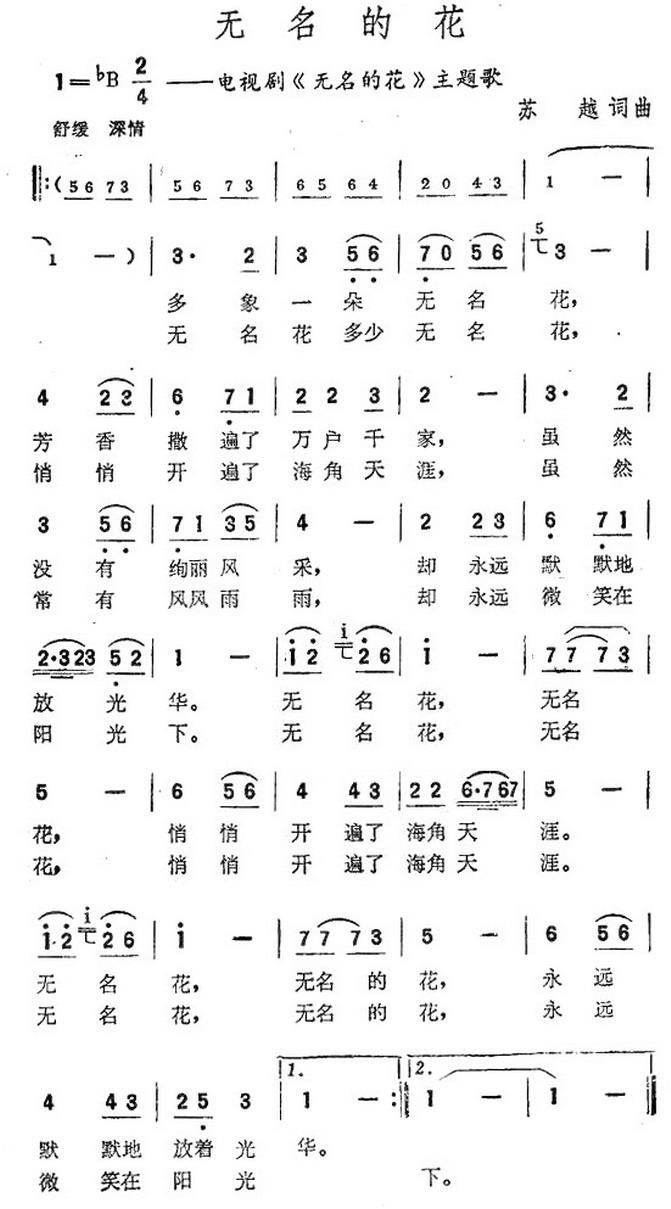 无名的花
1=♭B 2/4 ——电视剧《无名的花》主题歌
苏越词曲
舒缓 深情
‖:(5 6 7 3 | 5 6 7 3 | 6 5 6 4 | 2 0 4 3 | 1 — |
1 —) | 3· 2 | 3 5 6 | 7 0 5 6 | 5 3 — |
多 象 一 朵 无 名 花,
无 名 花 多少 无 名 花,
4 2 3 | 6 7 1 | 2 2 3 | 2 — | 3· 2 |
芳 香 撒 遍了 万 户 千 家, 虽 然
悄 悄 开 遍了 海 角 天 涯, 虽 然
3 5 6 | 7 1 3 5 | 4 — | 2 2 3 | 6 7 1 |
没 有 绚丽 风 采, 却 永远 默 默地
常 有 风风 雨 雨, 却 永远 微 笑在
2·323 5 2 | 1 — | i 2 i 2 6 | i — | 7 7 7 3 |
放 光 华。 无 名 花, 无名
阳 光 下。 无 名 花, 无名
5 — | 6 5 6 | 4 4 3 | 2 2 6·767 | 5 — |
花, 悄 悄 开 遍了 海角 天 涯。
花, 悄 悄 开 遍了 海角 天 涯。
i 2 i 2 6 | i — | 7 7 7 3 | 5 — | 6 5 6 |
无 名 花, 无名 的 花, 永 远
无 名 花, 无名 的 花, 永 远
4 4 3 | 2 5 3 | 1. 1 — :‖ 2. 1 — | 1 — ‖
默 默地 放着 光 华。
微 笑在 阳 光 下。